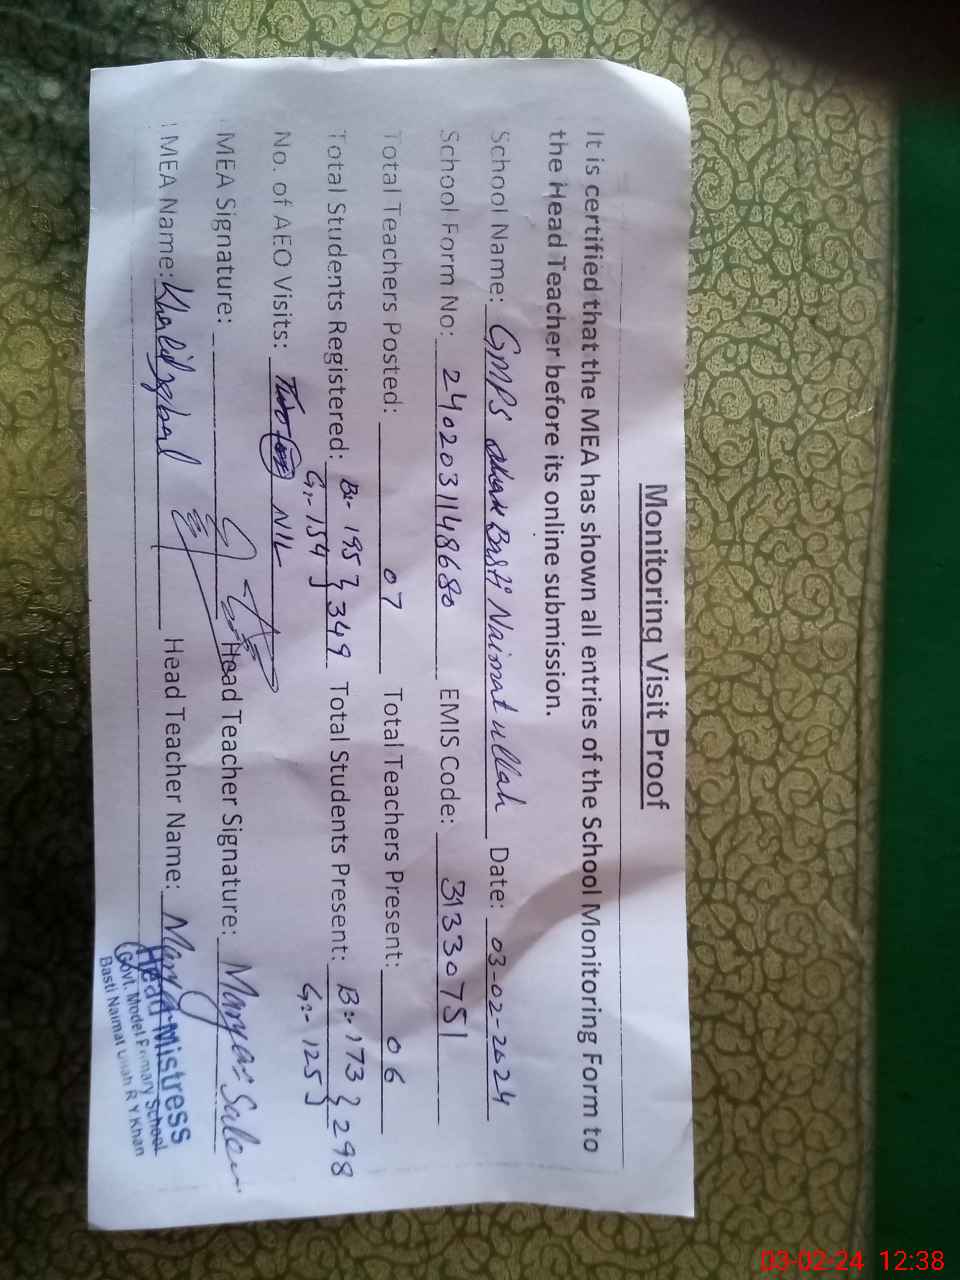 Monitoring Visit Proof
It is certified that the MEA has shown all entries of the School Monitoring Form to
the Head Teacher before its online submission.
School Name: GMPS Basti Naimat ullah Date: 03-02-2024
School Form No: 2402031148680 EMIS Code: 31330751
Total Teachers Posted: 07 Total Teachers Present: 06
Total Students Registered: B:- 195 } 349 Total Students Present: B:- 173 } 298
G:- 154 G:- 125
No. of AEO Visits: NIL
MEA Signature: Head Teacher Signature: Maryam Saleem
MEA Name: Khalid Iqbal Head Teacher Name: Maryam
Head Mistress
Govt. Model Primary School
Basti Naimat Ullah R.Y.Khan
03-02-24 12:38